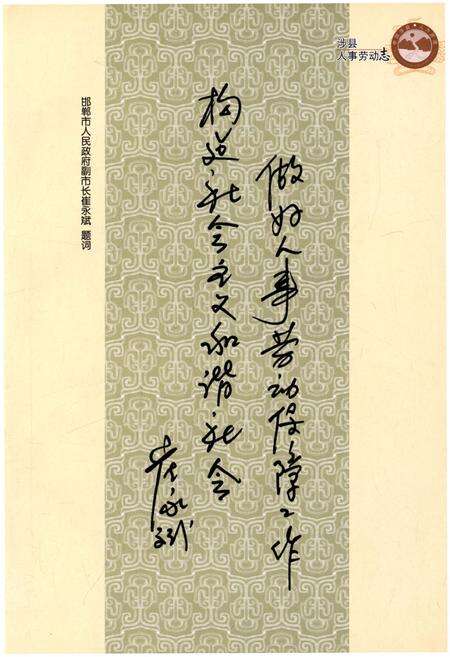 涉县
人事劳动志
做好人事劳动保障工作
构造社会主义和谐社会
崔永斌
邯郸市人民政府副市长崔永斌 题词